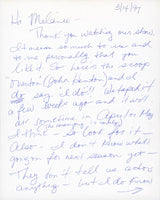 3/14/97
Hi Melanie -
Thank you watching our show.
It means so much to us and
to me personally that you
like it so here's the scoop
"Newton" (John Kenton) and I
do say "I do"!! We taped it
a few weeks ago and it will
air sometime in April or May
I think - so look for it -
Also - I don't know what's
going on for next season yet -
They don't tell us actors
anything - but I do know